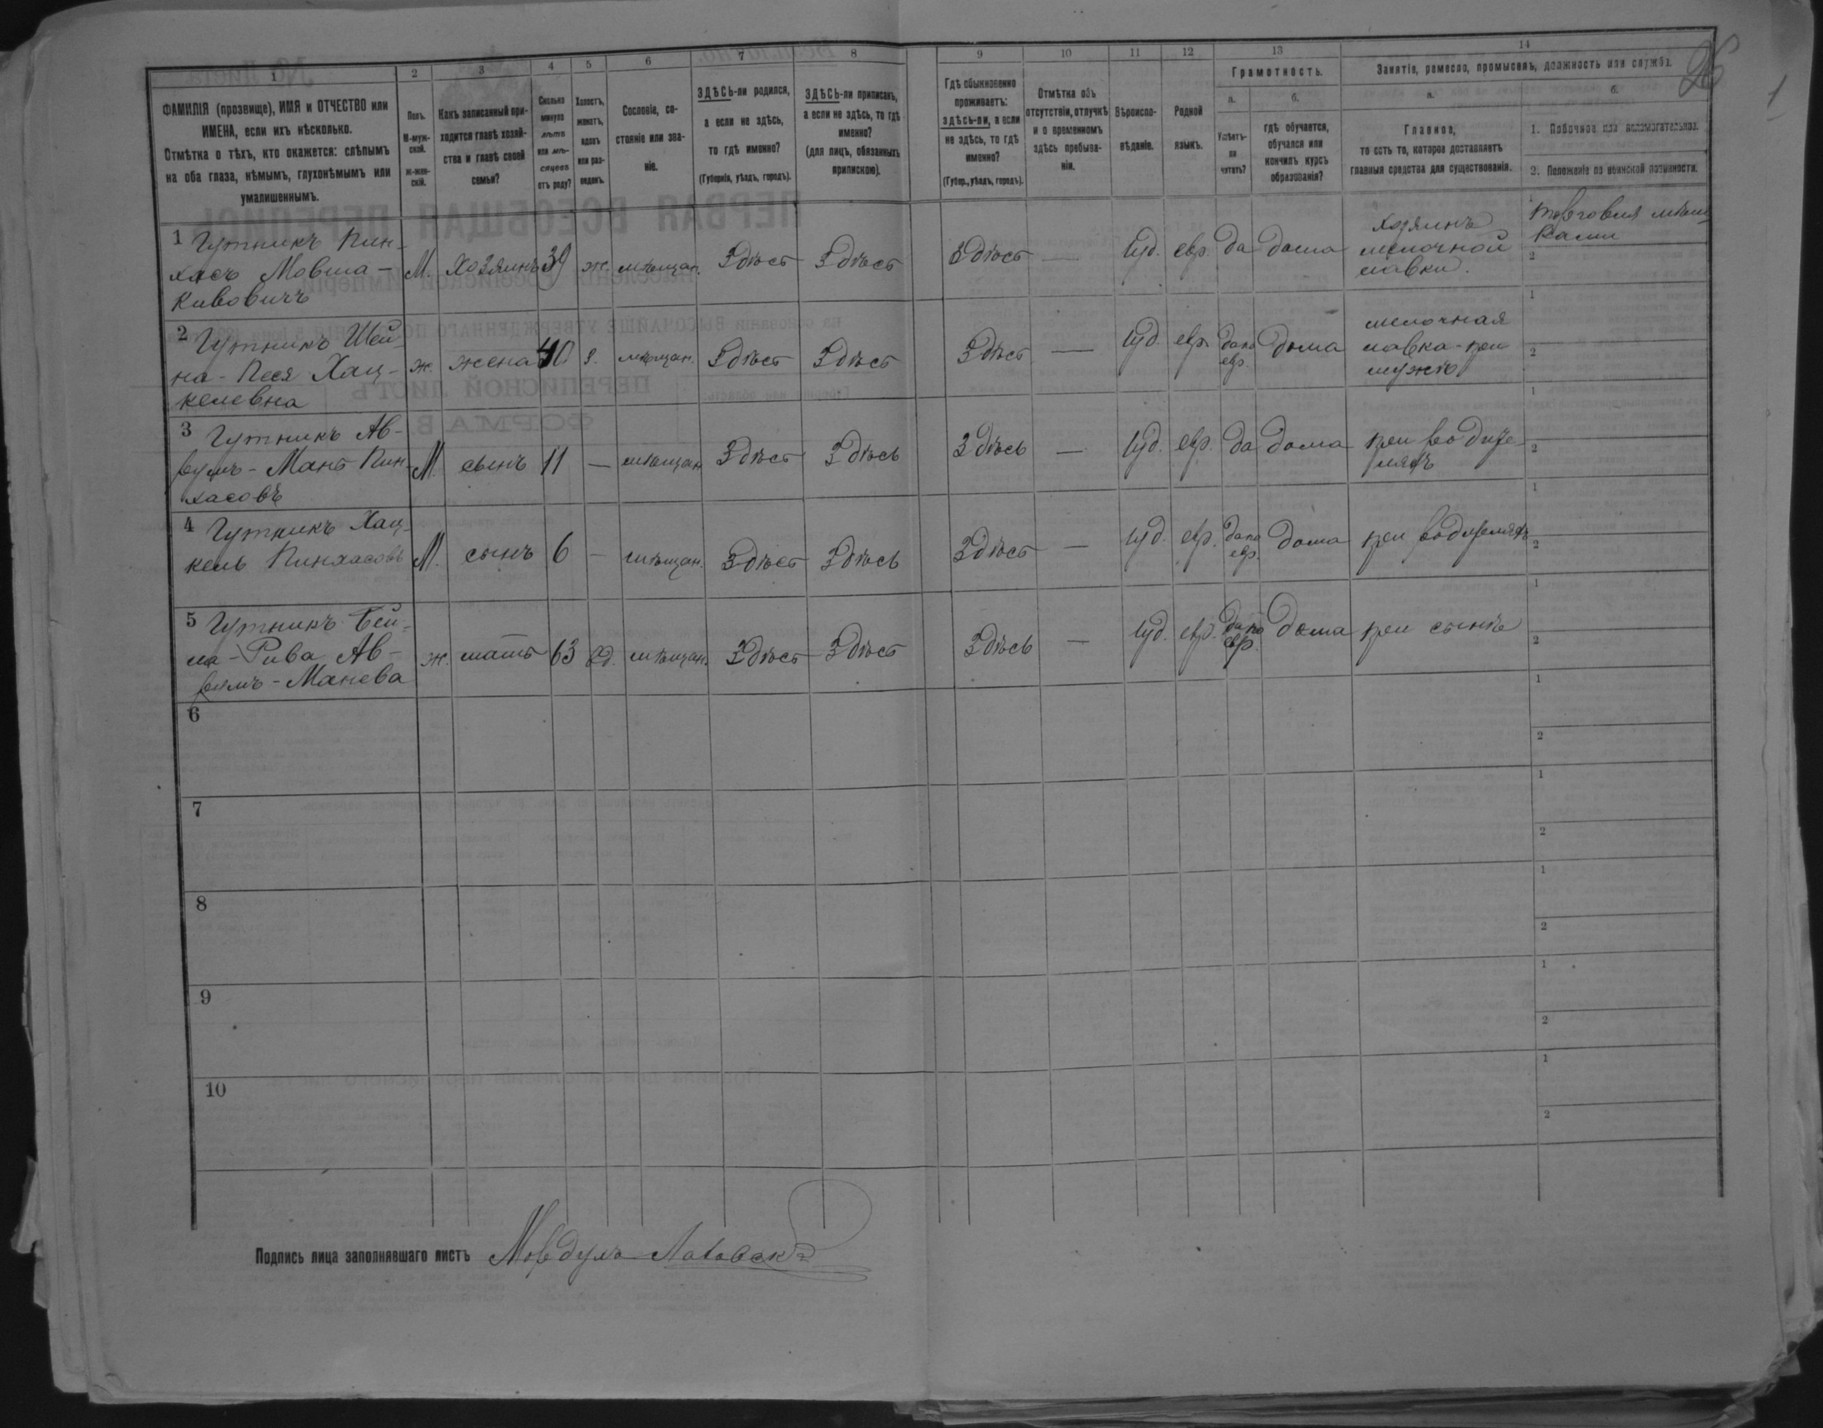 1 2 3 4 5 6 7 8 9 10 11 12 13 14
ФАМИЛІЯ (прозвище), ИМЯ и ОТЧЕСТВО или
ИМЕНА, если ихъ нѣсколько.
Отмѣтка о тѣхъ, кто окажется: слѣпымъ
на оба глаза, нѣмымъ, глухонѣмымъ или
умалишеннымъ.
Полъ.
М-муж-
ской.
ж-жен-
скій.
Какъ записанный при-
ходится главѣ хозяй-
ства и главѣ своей
семьи?
Сколько
минуло
лѣтъ
или мѣ-
сяцевъ
отъ роду?
Холостъ,
женатъ,
вдовъ
или раз-
веденъ.
Сословіе, со-
стояніе или зва-
ніе.
ЗДѢСЬ-ли родился,
а если не здѣсь,
то гдѣ именно?
(Губернія, уѣздъ, городъ).
ЗДѢСЬ-ли приписанъ,
а если не здѣсь, то гдѣ
именно?
(для лицъ, обязанныхъ
припискою).
Гдѣ обыкновенно
проживаетъ:
здѣсь-ли, а если
не здѣсь, то гдѣ
именно?
(Губер., уѣздъ, городъ).
Отмѣтка объ
отсутствіи, отлучкѣ
и о временномъ
здѣсь пребыва-
ніи.
Вѣроиспо-
вѣданіе.
Родной
языкъ.
Грамотность.
а.
Умѣетъ-
ли
читать?
б.
гдѣ обучается,
обучался или
кончилъ курсъ
образованія?
Занятіе, ремесло, промыселъ, должность или служба.
а.
Главное,
то есть то, которое доставляетъ
главныя средства для существованія.
б.
1. Побочное или вспомогательное.
2. Положеніе по воинской повинности.
26
1
1 Гутникъ Пин-
хасъ Мовша-
Кивовичъ
М. Хозяинъ 39 ж. мѣщан. Здѣсь Здѣсь Здѣсь — Іуд. евр. да дома
хозяинъ
мелочной
лавки.
2
2 Гутникъ Шей-
на-Песя Хац-
келевна
ж. жена 40 з. мѣщан. Здѣсь Здѣсь Здѣсь — Іуд. евр. да по
евр. дома
мелочная
лавка-при
мужѣ
1
2
3 Гутникъ Ав-
румъ-Манъ Пин-
хасовъ
М. сынъ 11 — мѣщан. Здѣсь Здѣсь Здѣсь — Іуд. евр. да дома
при родите-
ляхъ
1
2
4 Гутникъ Хац-
кель Пинхасовъ
М. сынъ 6 — мѣщан. Здѣсь Здѣсь Здѣсь — Іуд. евр. да по
евр. дома при родителяхъ
1
2
5 Гутникъ Бей-
ла-Рива Ав-
румъ-Манева
ж. мать 63 вд. мѣщан. Здѣсь Здѣсь Здѣсь — Іуд. евр. да по
евр. дома при сынѣ
1
2
6
1
2
7
1
2
8
1
2
9
1
2
10
1
2
Подпись лица заполнявшаго листъ